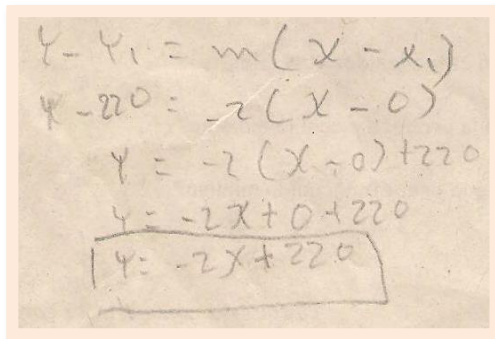 Y - Y₁ = m(x - x₁)
Y - 220 = -2(x - 0)
Y = -2(x - 0) + 220
Y = -2x + 0 + 220
Y = -2x + 220